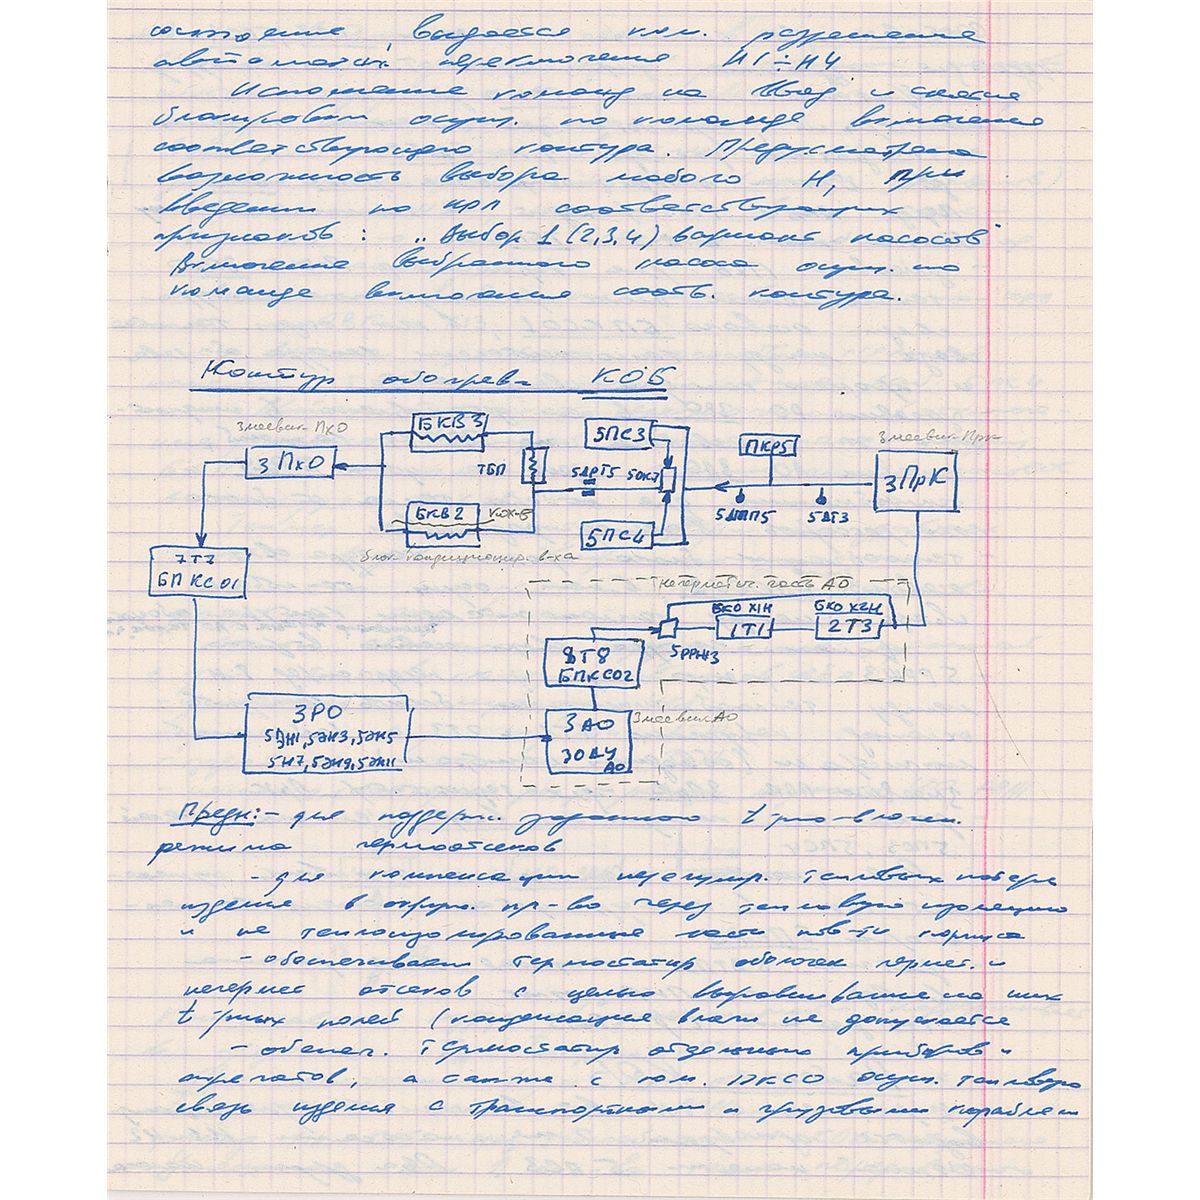 состояние, выдается ком. разрешение
автоматич. переключения Н1÷Н4
Исполнение команд на ввод и снятие
блокировки осущ. по команде включения
соответствующего контура. Предусмотрена
возможность выбора любого Н, при
введении по КРЛ соответствующих
признаков: „Выбор 1 (2,3,4) вариант насосов"
Включение выбранного насоса осущ. по
команде включения соотв. контура.
Контур обогрева КОБ
Змеевик ПхО
БКВ3
5ПС3
ПКР5
Змеевик ПрК
ЗПхО
ТБП
5ДРТ5
5ОК7
ЗПрК
БКВ2
5ПС4
5ДТ3
блок кондиционир. в-ха
7Т7
БПКСО1
негерметич. часть АО
БКО Х1Н
БКО Х2Н
1Т1
2Т3
5РРЖ3
8Т8
БПКСО2
ЗРО
5ЭН1, 5ЭН3, 5ЭН5
5Н7, 5ЭН9, 5ЭН11
ЗАО
ЗОДУ
АО
Змеевик АО
Предн: - для поддерж. заданного t-рно-влажн.
режима гермоотсеков
- для компенсации регулир. тепловых потерь
изделия в окруж. пр-во через тепловую изоляцию
и не теплоизолированные части пов-ти корпуса
- обеспечивает термостатир оболочек гермет. и
негермет отсеков с целью выравнивание на них
t-рных полей (конденсация влаги не допускается
- обеспеч. термостатир отдельных приборов и
агрегатов, а также с пом. ПКСО осущ. тепловую
связь изделия с транспортными и грузовыми кораблями